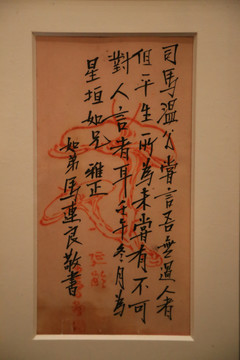 司馬溫公嘗言吾無過人者
但平生所為未嘗有不可
對人言者耳壬午冬月為
星垣如兄 雅正
如弟馬連良敬書
延齡